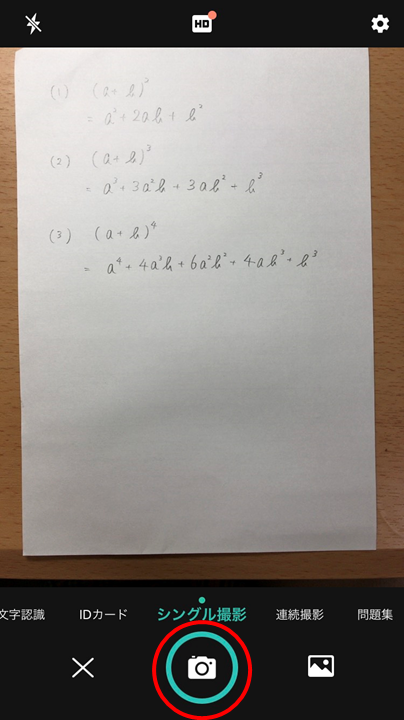 HD
(1) (a+b)²
= a²+2ab+b²
(2) (a+b)³
= a³+3a²b+3ab²+b³
(3) (a+b)⁴
= a⁴+4a³b+6a²b²+4ab³+b³
文字認識 IDカード シングル撮影 連続撮影 問題集